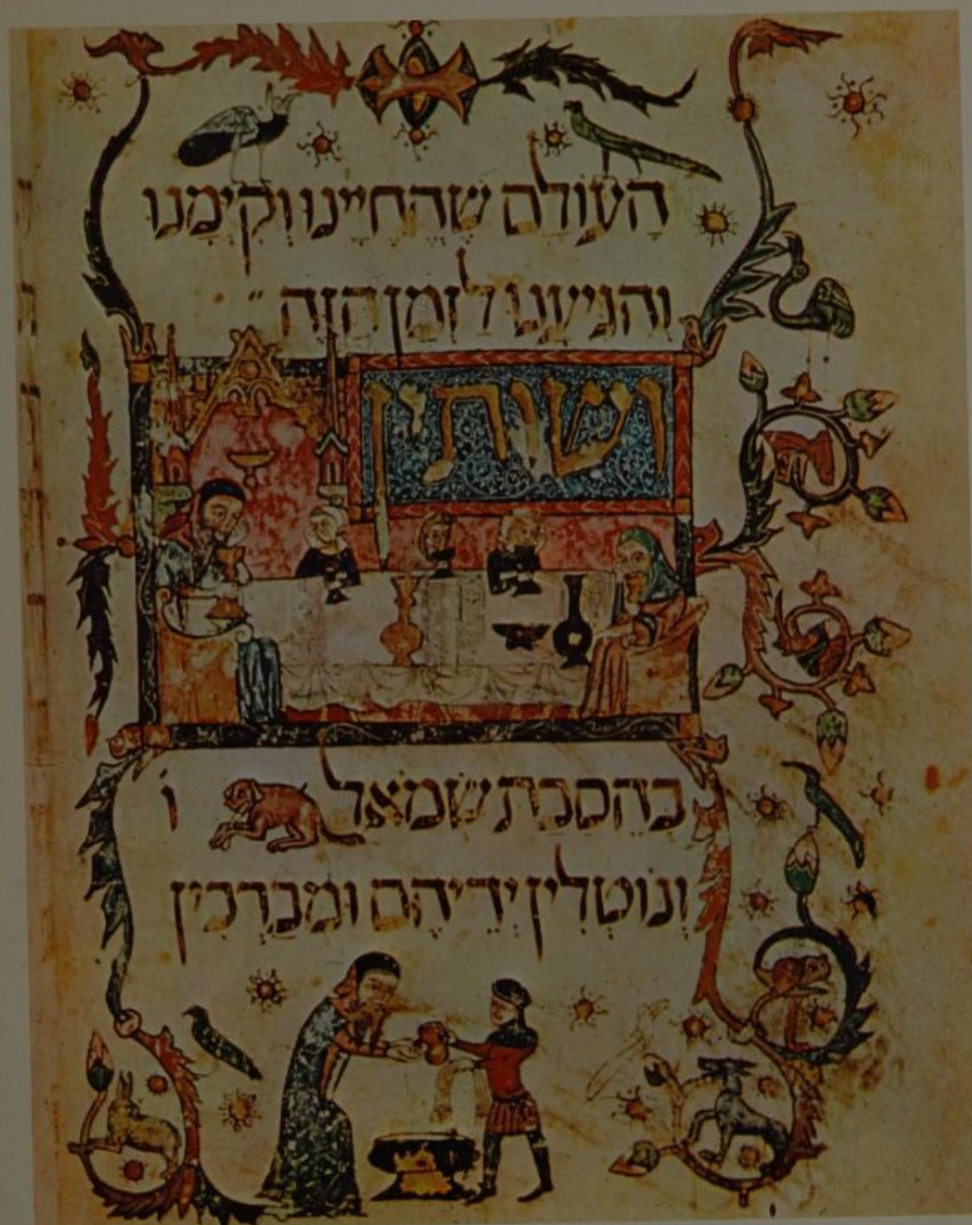 הָעוֹלָם שֶׁהֶחֱיָינוּ וְקִיְּמָנוּ
וְהִגִּיעָנוּ לַזְּמַן הַזֶּה
ושותין
בַּהֲסִבַּת שְׂמֹאל וֹ
וְנוֹטְלִין יְדֵיהֶם וּמְבָרְכִין